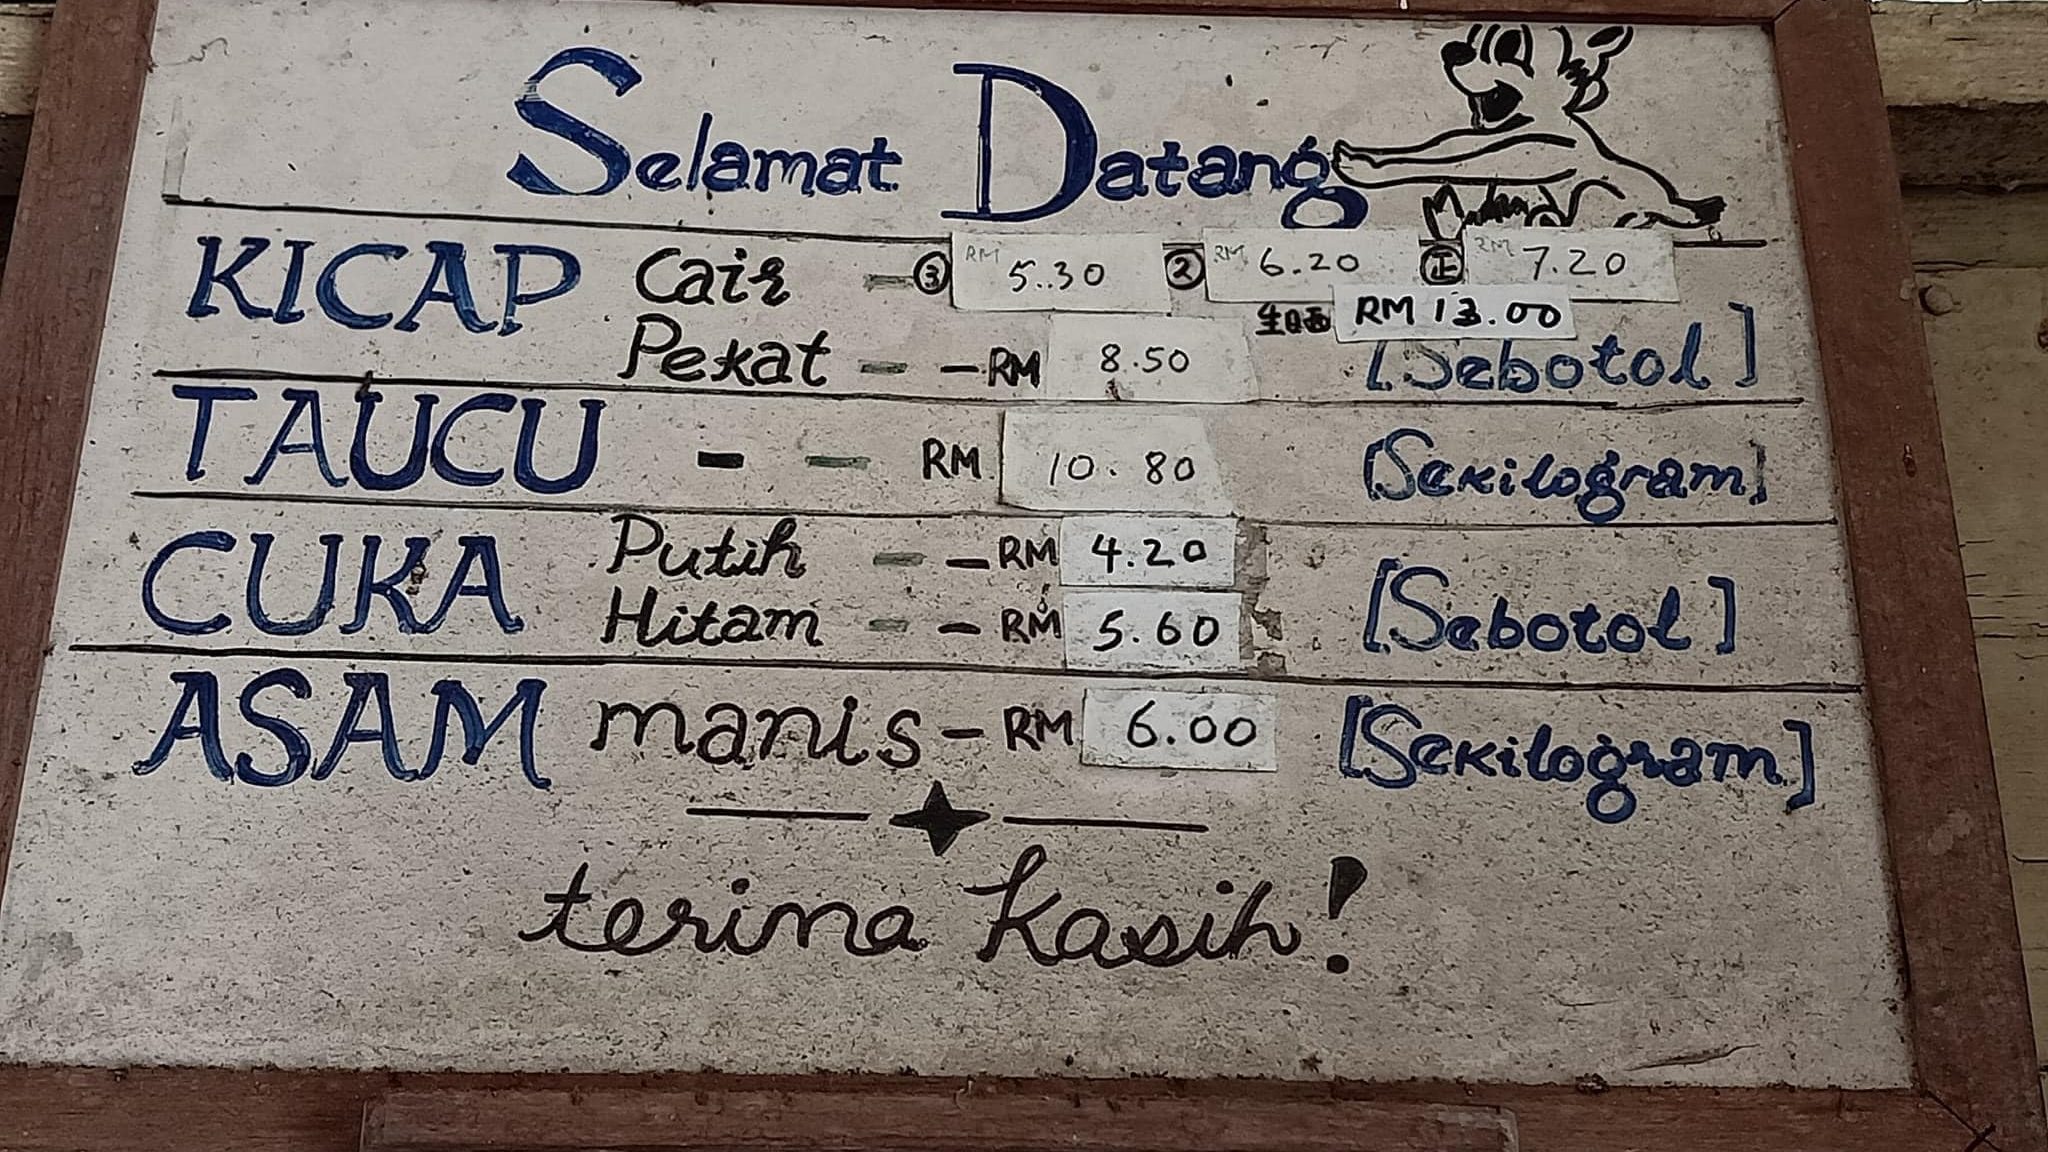 Selamat Datang
KICAP Cair - ③ RM 5.30 ② RM 6.20 ㊣ RM 7.20
RM 13.00
Pekat - - RM 8.50 [Sebotol]
TAUCU - - RM 10.80 [Sekilogram]
CUKA Putih - - RM 4.20
Hitam - - RM 5.60 [Sebotol]
ASAM manis - RM 6.00 [Sekilogram]
terima kasih!